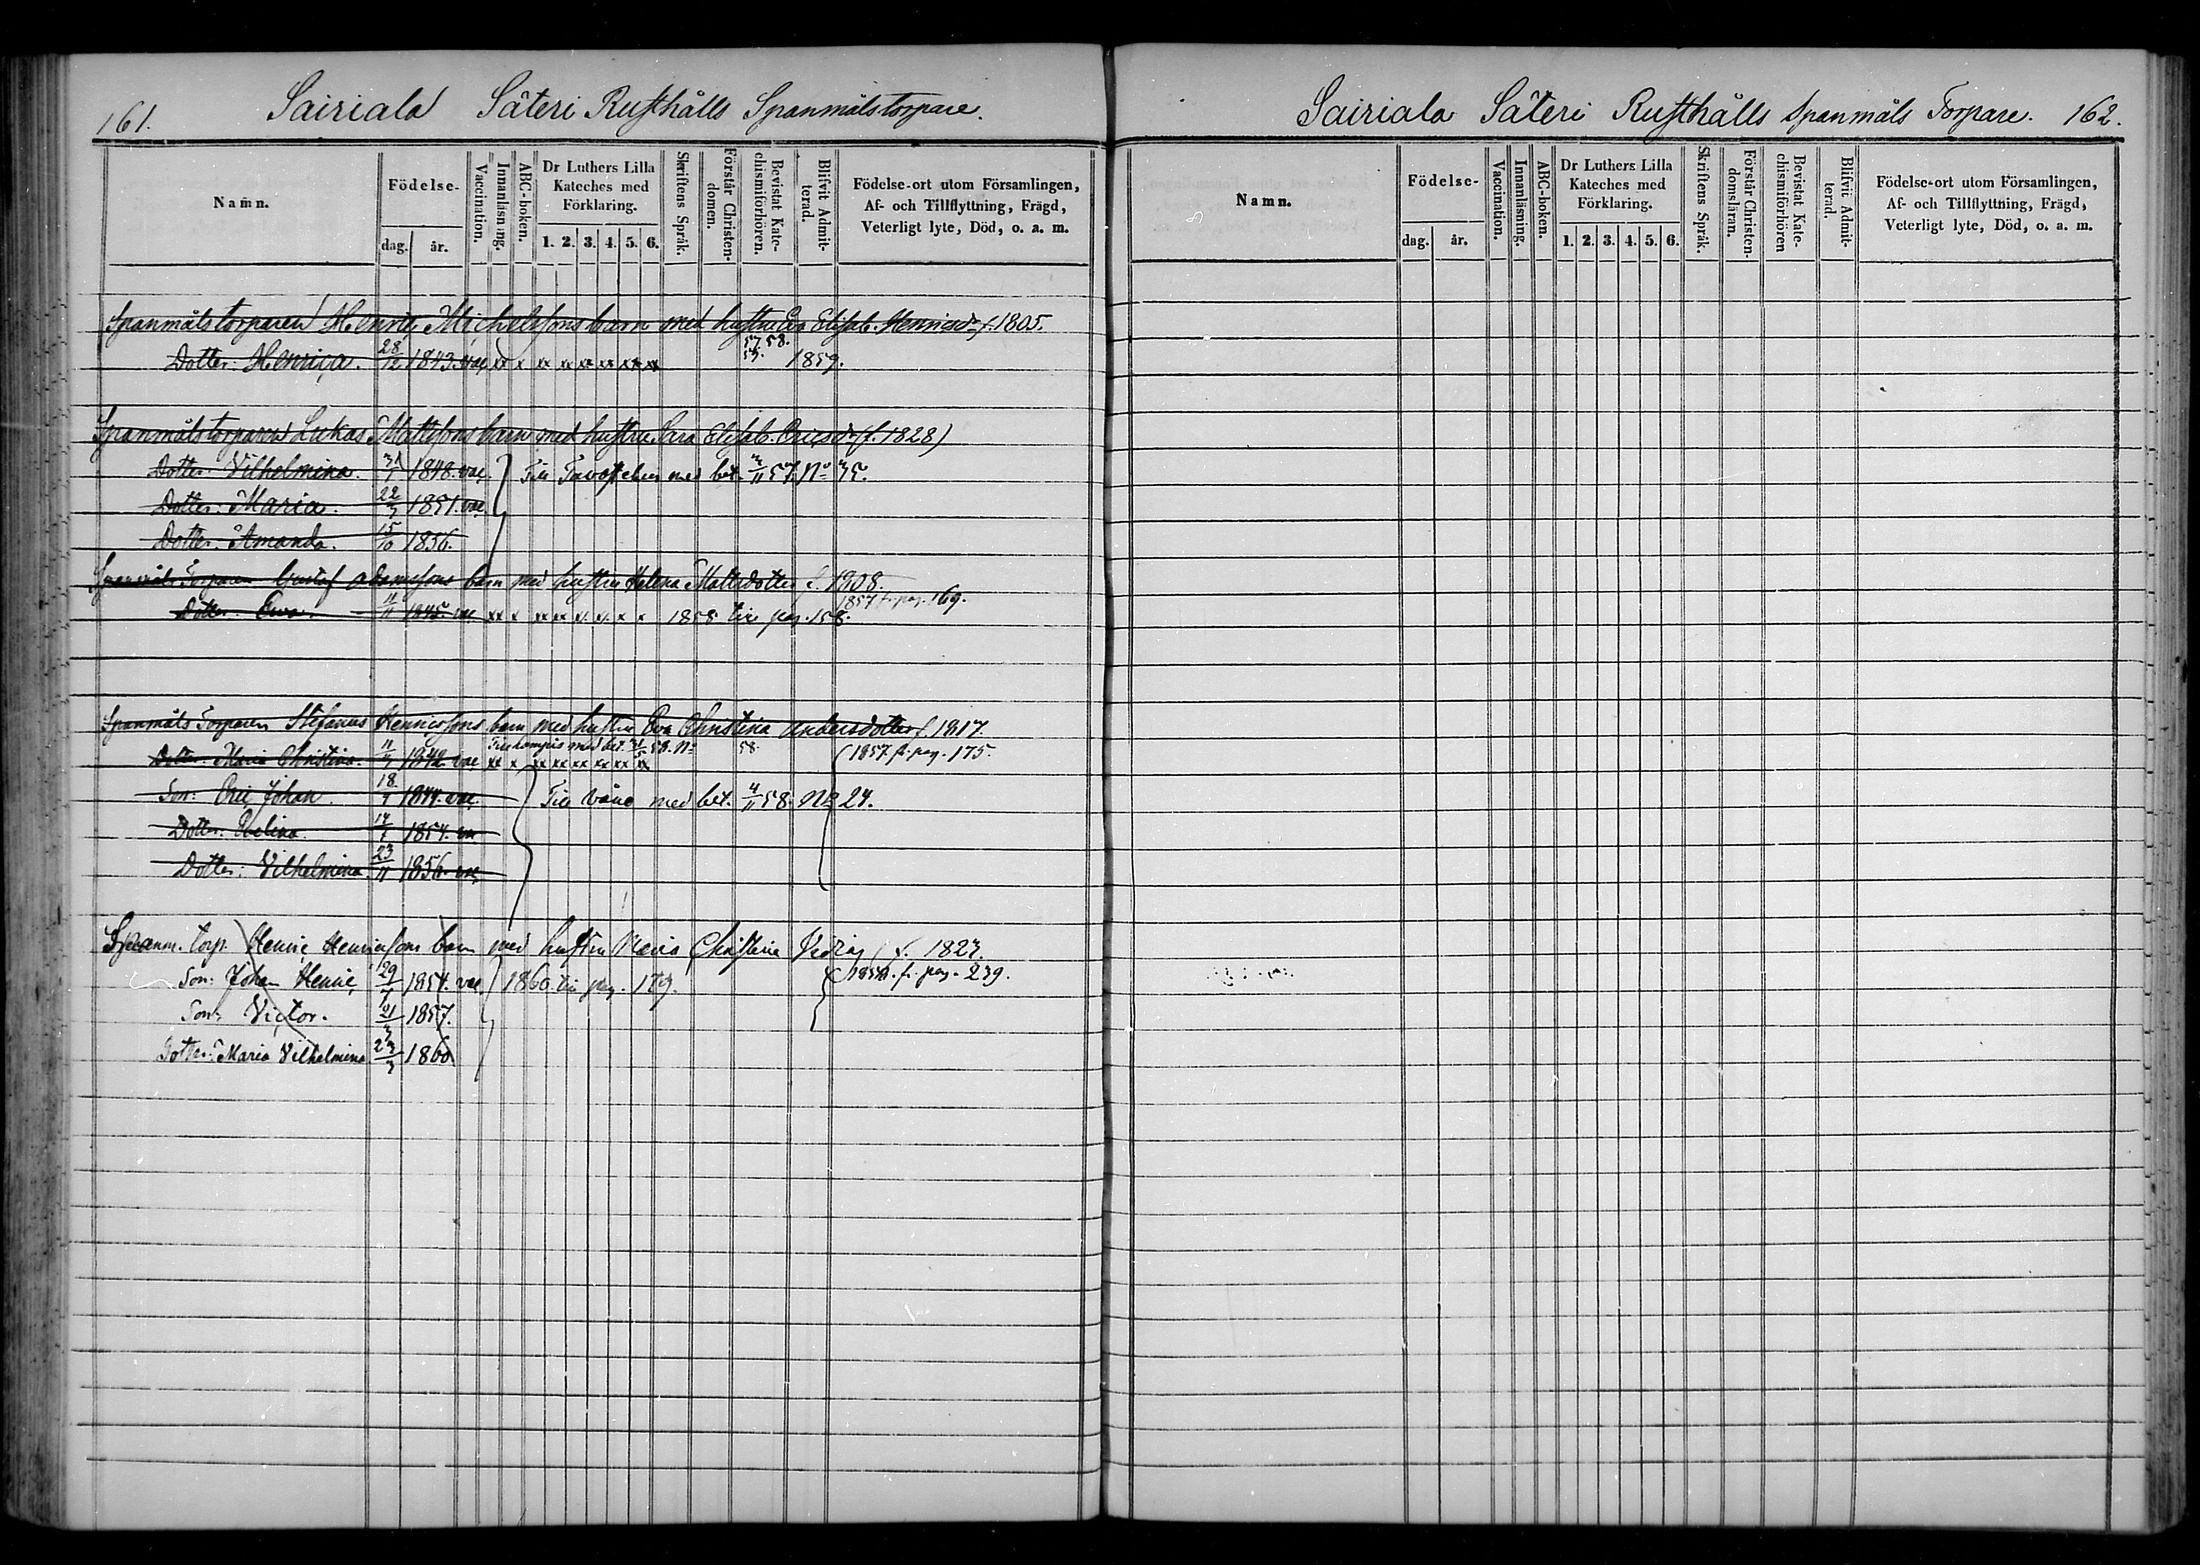 161.
Sairiala Säteri Rusthålls Spanmålstorpare.
Namn.
Födelse-
dag. år.
Vaccination.
Innanläsning.
ABC-boken.
Dr Luthers Lilla
Kateches med
Förklaring.
1. 2. 3. 4. 5. 6.
Skriftens Språk.
Förstår Christen-
domen.
Bevistat Kate-
chismiförhören.
Blifvit Admit-
terad.
Födelse-ort utom Församlingen,
Af- och Tillflyttning, Frägd,
Veterligt lyte, Död, o. a. m.
Spanmålstorparen Henric Michelssons barn med hustru Eva Elisab. Henricsdr f. 1805.
Dotter: Henrica. 28/12 1843. vac. xx x xx xx xx xx xx xx 57. 58. 59. 1859.
Spanmålstorparen Lukas Mattssons barn med hustru Sara Elisab. Ericsdr (f. 1828)
Dotter: Vilhelmina. 31/1 1848. vac. Till Tavastehus med bet. 3/11 57. No 35.
Dotter: Maria. 22/3 1851. vac.
Dotter: Amanda. 15/10 1856.
Spanmåls Torparen Gustaf Adamssons barn med hustru Helena Mattsdotter f. 1808.
Dotter: Eva. 11/11 1845. vac xx x xx xx x x x x 1858 till pag. 158. 1857 fr. pag. 169.
Spanmåls Torparen Stefanus Henricssons barn med hustru Eva Christina Andersdotter f. 1817.
Dotter: Maria Christina. 11/7 1842. vac xx x xx xx xx xx xx xx 58. (1857 fr. pag. 175.
Son: Eric Johan. 18. 1844. vac. Till Vånå med bet. 4/11 58. No 24.
Dotter: Evelina. 1854. vac
Dotter: Vilhelmina. 23/11 1856. vac
Spanm. torp. Henric Henricssons barn med hustru Maria Christina (f. 1823.
Son: Johan Henric 29 1854. vac. 1860. till pag. 179. fr. pag. 239.
Son: Victor. 21/3 1857.
Dotter: Maria Vilhelmina. 23/3 1860
Sairiala Säteri Rusthålls Spanmåls Torpare. 162.
Namn.
Födelse-
dag. år.
Vaccination.
Innanläsning.
ABC-boken.
Dr Luthers Lilla
Kateches med
Förklaring.
1. 2. 3. 4. 5. 6.
Skriftens Språk.
Förstår Christen-
domsläran.
Bevistat Kate-
chismiförhören
Blifvit Admit-
terad.
Födelse-ort utom Församlingen,
Af- och Tillflyttning, Frägd,
Veterligt lyte, Död, o. a. m.